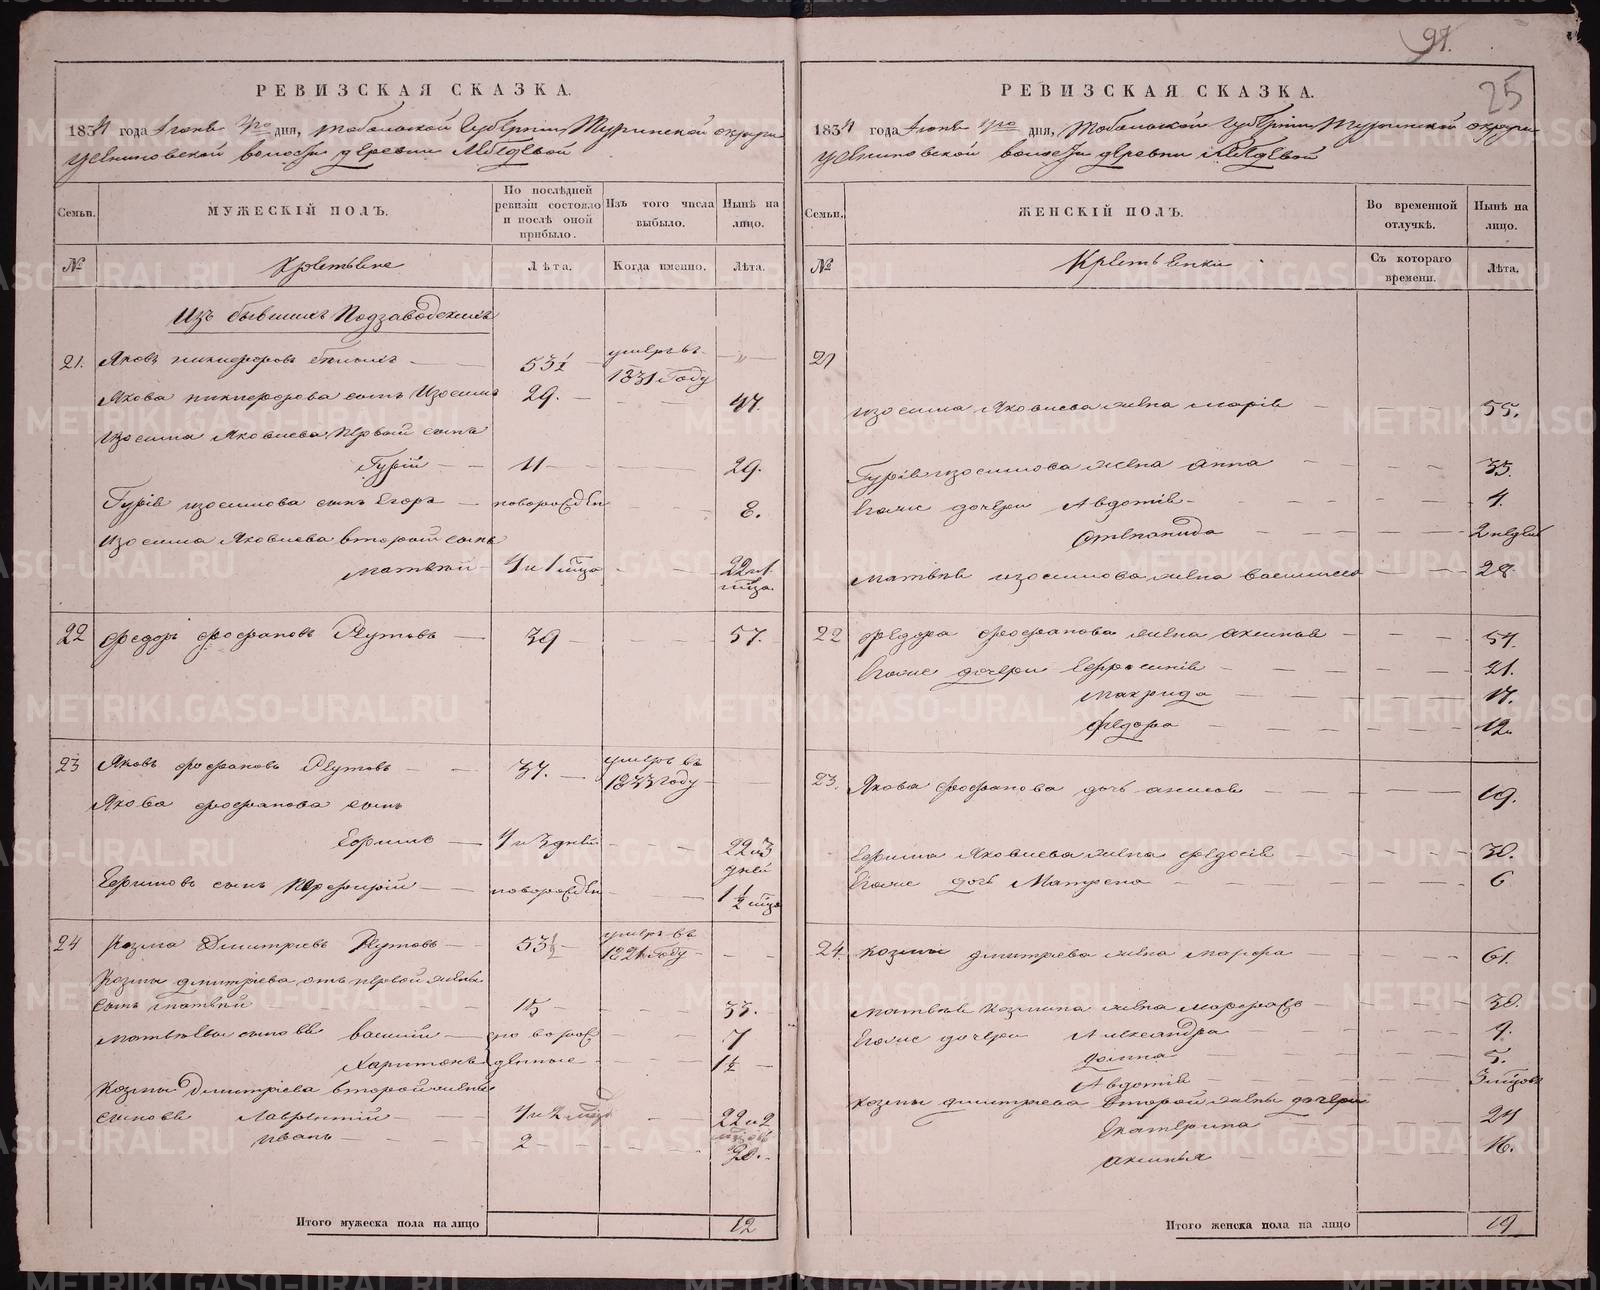 97.
25
РЕВИЗСКАЯ СКАЗКА.
1834 года Iюня 1го дня, Тобольской Губернiи, Туринской округи
Усениновской волости деревни Лебедевой
Семьи.
МУЖЕСКIЙ ПОЛЪ.
По послѣдней ревизiи состояло и послѣ оной прибыло.
Изъ того числа выбыло.
Нынѣ на лицо.
№
Крестьяне
Лѣта.
Когда именно.
Лѣта.
Изъ бывшихъ Подзаводскихъ
21. Яковъ никифоровъ 53½ умеръ въ 1831 Году
Якова никифорова сынъ Изосима 29. 47.
Изосима Яковлева первой сынъ
Гурiй 11 29.
Гурiя изосимова сынъ Егоръ новорожден 8.
Изосима Яковлева второй сынъ
матвѣй 4 и 1 мца 22 и 1 мца.
22 Федоръ феофановъ Реутовъ 39 57.
23 Яковъ феофановъ Реутовъ 37. умеръ въ 1833 году
Якова феофанова сынъ
Ефимъ 4 и 3 дней 22 и 3 дней
Ефимовъ сынъ Перфирiй новорожден 1½ мца
24 Козма Дмитрiевъ Реутовъ 53½ умеръ въ 1821 Году
Козмы дмитрiева отъ первой жены
сынъ матвѣй 15 33.
матвѣевы сыновья василiй ново рож 7
Харитонъ денные 1½
Козмы Дмитрiева второй жены
сыновья Лаврентiй 4 и 2 мцов 22 и 2 мцов
иванъ 2 20.
Итого мужеска пола на лицо 12
РЕВИЗСКАЯ СКАЗКА.
1834 года Iюня 1го дня, Тобольской Губернiи, Туринской округи
Усениновской волости деревни Лебедевой
Семьи.
ЖЕНСКIЙ ПОЛЪ.
Во временной отлучкѣ.
Нынѣ на лицо.
№
Крестьянки
Съ котораго времени.
Лѣта.
21
изосима Яковлева жена марiя 55.
Гурiя изосимова жена анна 35.
Егоже дочери Авдотiя 4.
Степанида 2 недѣли
матвѣя изосимова жена василиса 28
22 федора феофанова жена аксинья 54.
Егоже дочери Ефросинiя 21.
макрида 17.
федора 12.
23. Якова феофанова дочь 19.
Ефима Яковлева жена федосiя 30.
Егоже дочь Матрена 6
24. козмы дмитрiева жена марфа 61.
матвѣя козмина жена 30.
Егоже дочери Александра 9.
домна 5.
Авдотiя 3 мцов
козмы дмитрiева второй жены дочери
Екатерина 24
аксинья 16.
Итого женска пола на лицо 19
METRIKI.GASO-URAL.RU